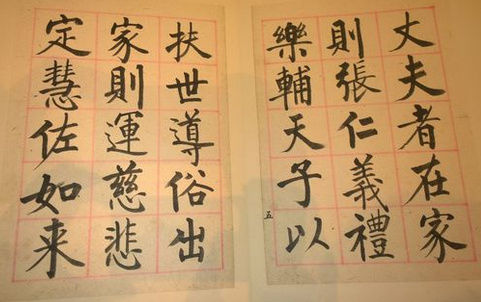 丈夫者在家
則張仁義禮
樂輔天子以
五
扶世導俗出
家則運慈悲
定慧佐如来